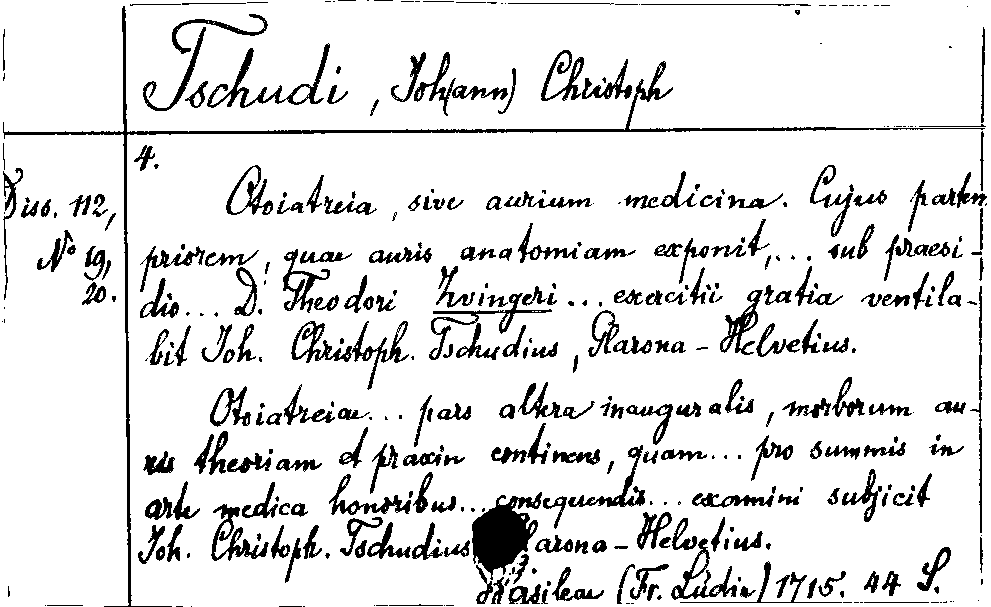 Tschudi, Joh(ann) Christoph
4.
Diss. 112,
No 19,
20.
Otoiatreia, sive aurium medicina. Cujus partem
priorem, quae auris anatomiam exponit,... sub praesi-
dio... D. Theodori Zvingeri... exercitii gratia ventila-
bit Joh. Christoph. Tschudius, Glarona-Helvetius.
Otoiatreiae... pars altera inauguralis, morborum au-
ris theoriam et praxin continens, quam... pro summis in
arte medica honoribus... consequendis... examini subjicit
Joh. Christoph. Tschudius larona-Helvetius.
Basileae (Fr. Lüdin) 1715. 44 S.